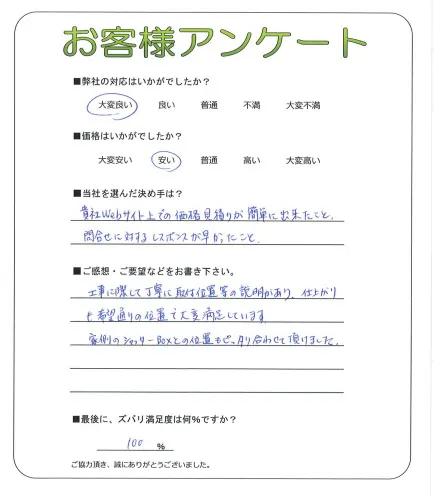 お客様アンケート
■弊社の対応はいかがでしたか？
大変良い 良い 普通 不満 大変不満
■価格はいかがでしたか？
大変安い 安い 普通 高い 大変高い
■当社を選んだ決め手は？
貴社Webサイト上での価格見積りが簡単に出来たこと、
問合せに対するレスポンスが早かったこと、
■ご感想・ご要望などをお書き下さい。
工事に際して丁寧に取付位置等の説明があり、仕上がり
も希望通りの位置で大変満足しています
のシャッターBoxとの位置もピッタリ合わせて頂けました。
■最後に、ズバリ満足度は何％ですか？
100 %
ご協力頂き、誠にありがとうございました。